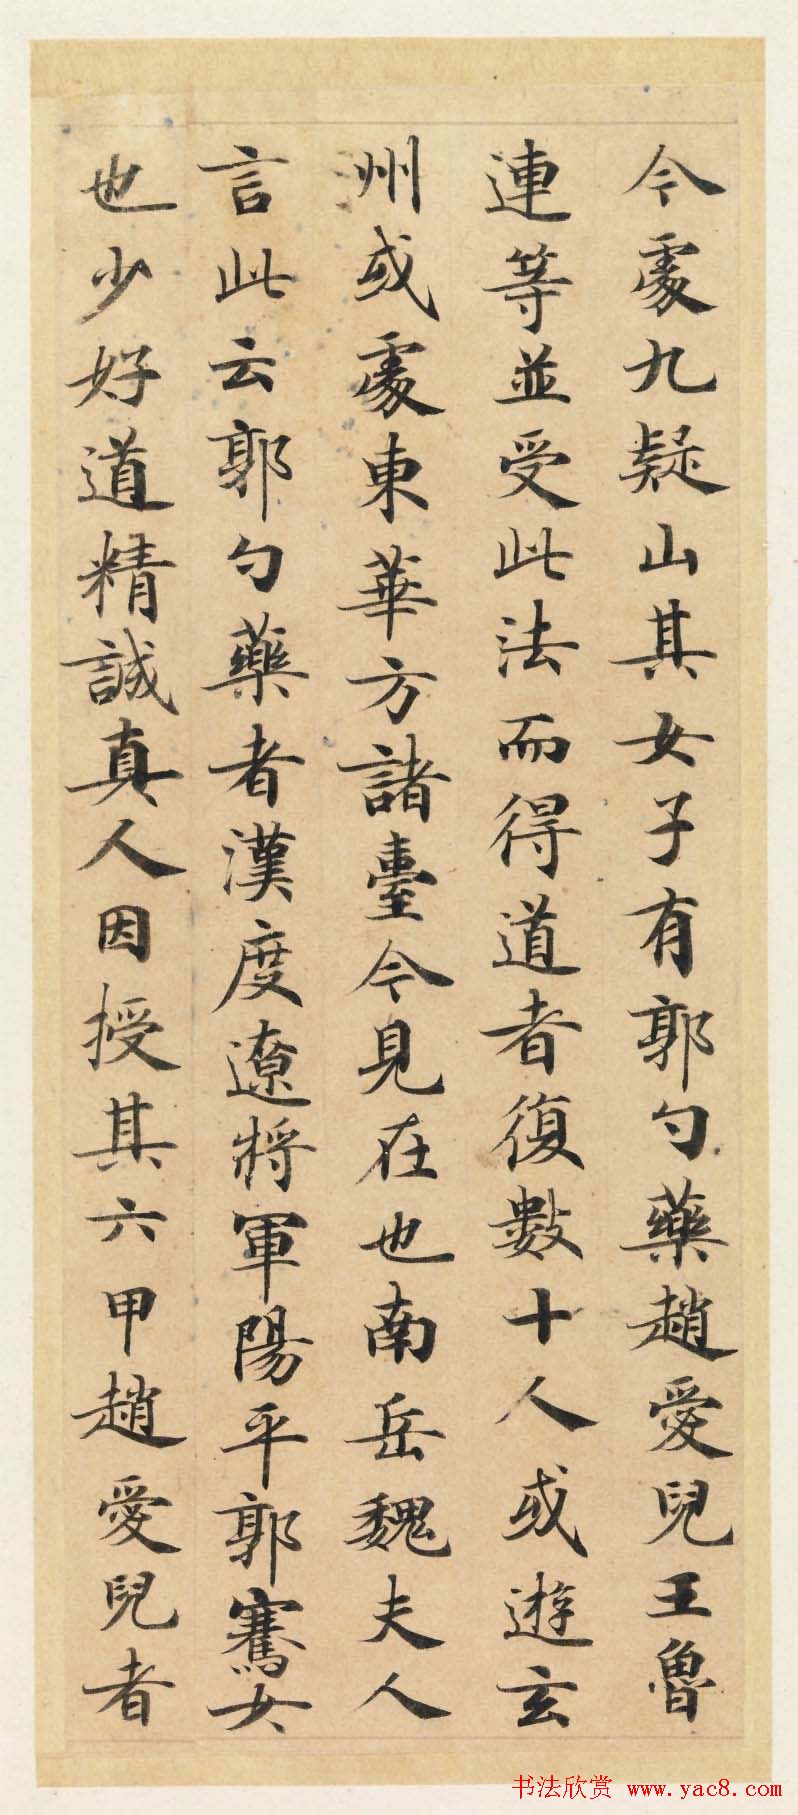 今處九疑山其女子有郭勺藥趙愛兒王魯
連等並受此法而得道者復數十人或遊玄
州或處東華方諸臺今見在也南岳魏夫人
言此云郭勺藥者漢度遼將軍陽平郭騫女
也少好道精誠真人因授其六甲趙愛兒者
书法欣赏 www.yac8.com